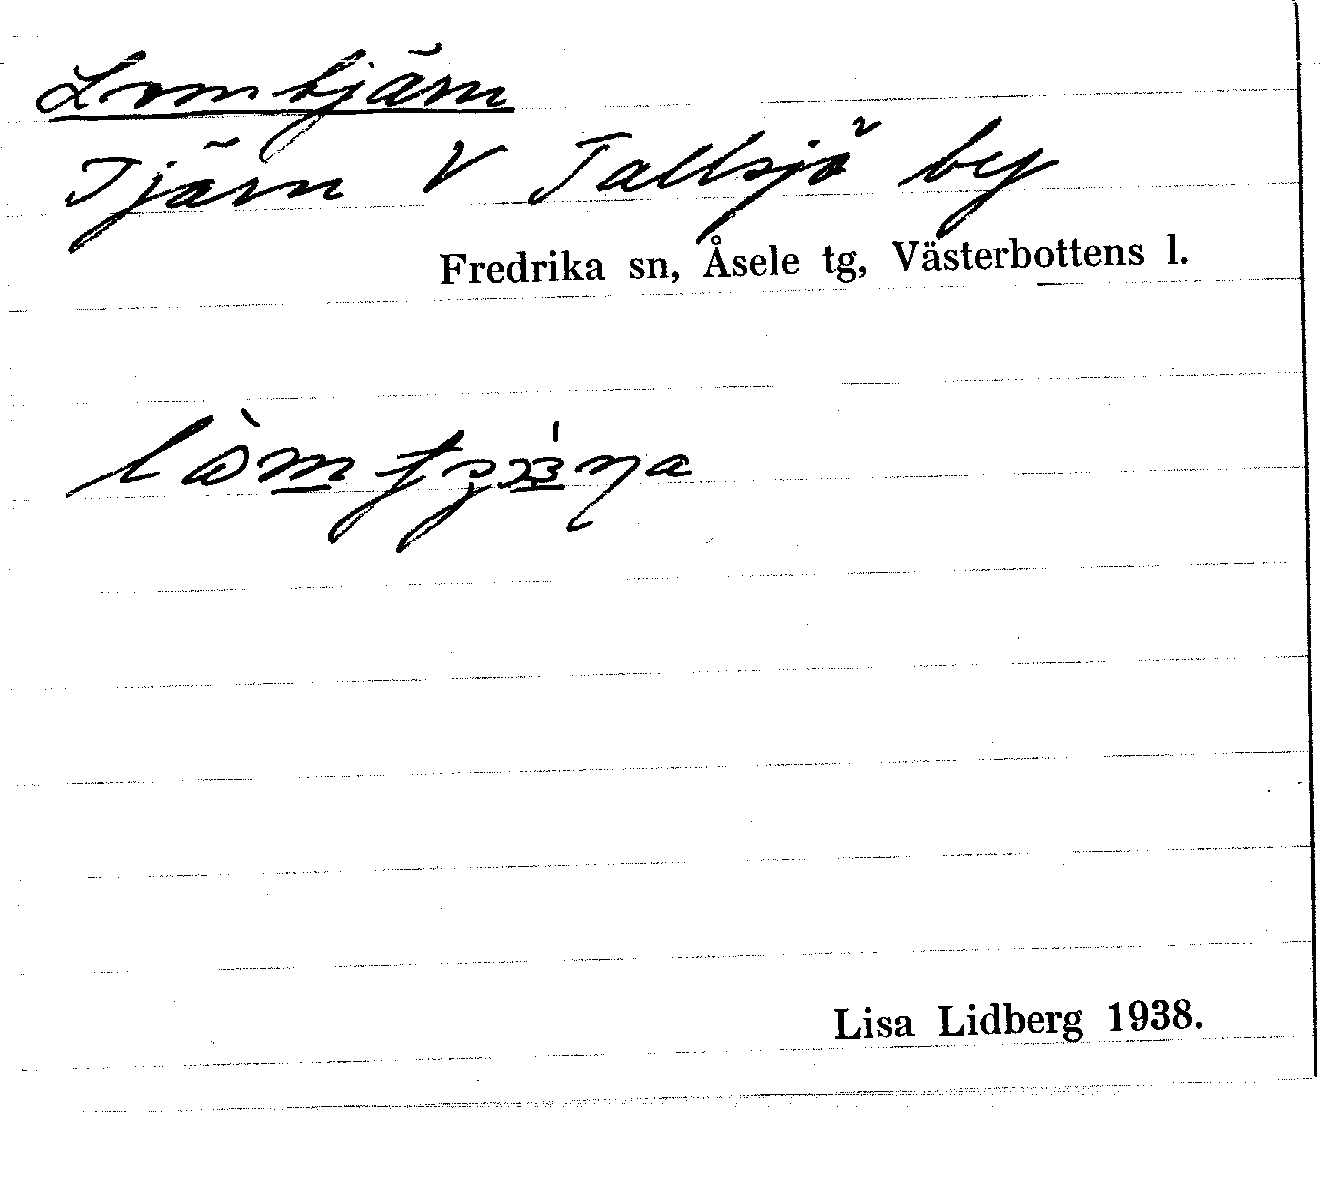 Lomtjärn
Tjärn V Tallsjö by
Fredrika sn, Åsele tg, Västerbottens l.
Lisa Lidberg 1938.